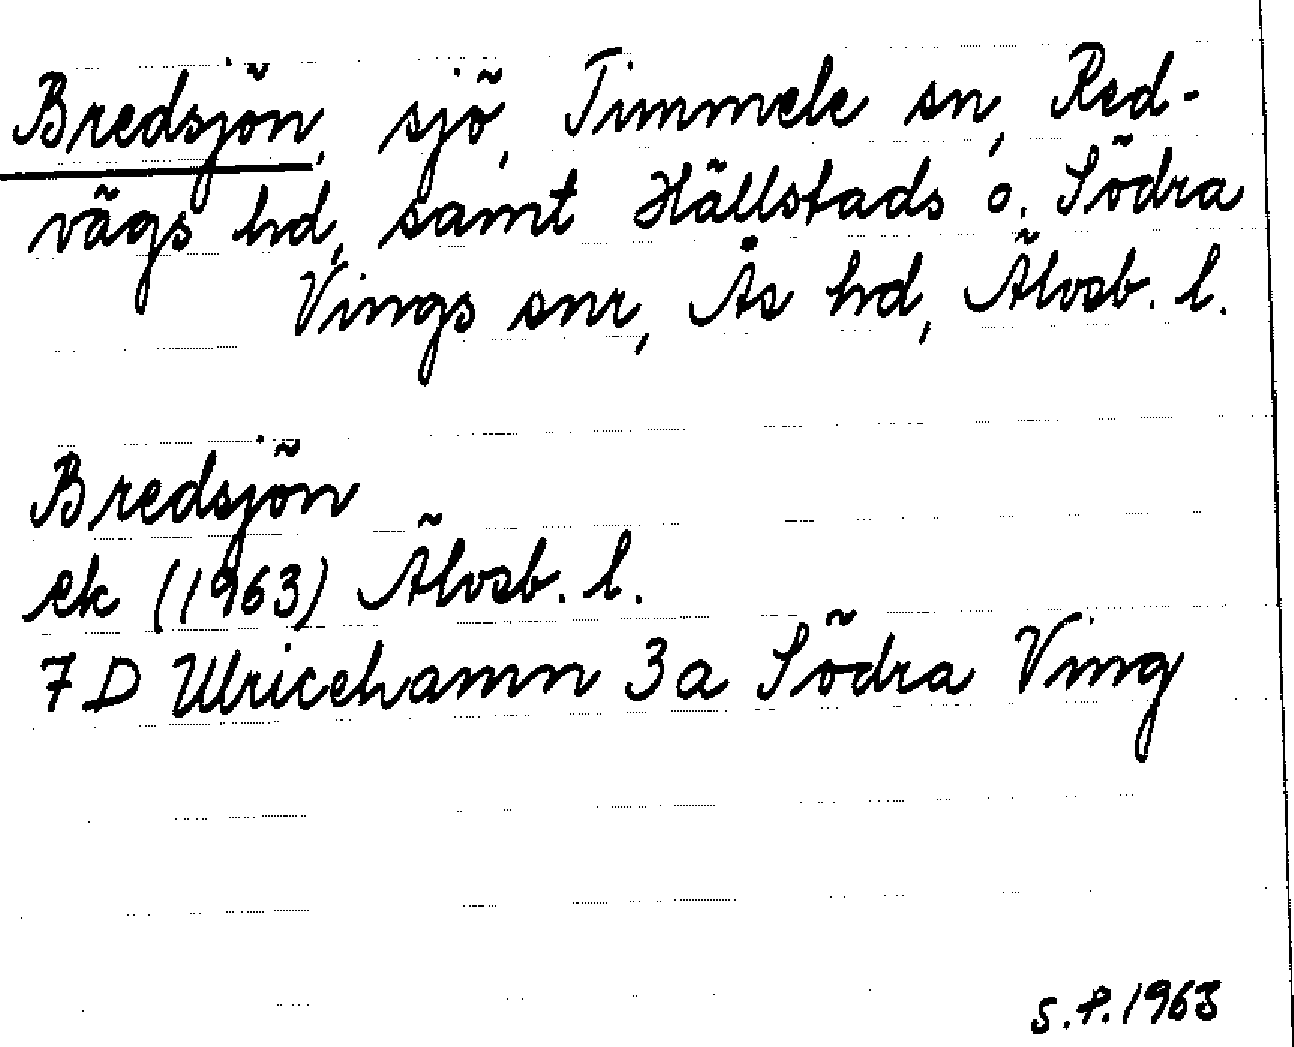 Bredsjön, sjö, Timmele sn, Red-
vägs hd, samt Hällstads o. Södra
Vings snr, Ås hd, Älvsb. l.
Bredsjön
ek (1963) Älvsb. l.
7 D Ulricehamn 3a Södra Ving
S.P. 1963